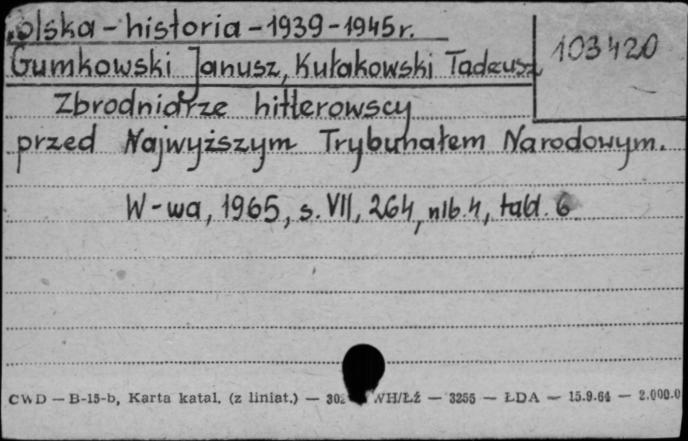 Polska - historia - 1939 - 1945 r.
103420
Gumkowski Janusz, Kułakowski Tadeusz
Zbrodniarze hitlerowscy
przed Najwyższym Trybunałem Narodowym.
W-wa, 1965, s. VII, 264, nlb. 4, tabl. 6
CWD — B-15-b, Karta katal. (z liniat.) — WH/ŁŻ — 3255 — ŁDA — 15.9.64 — 2.000.0